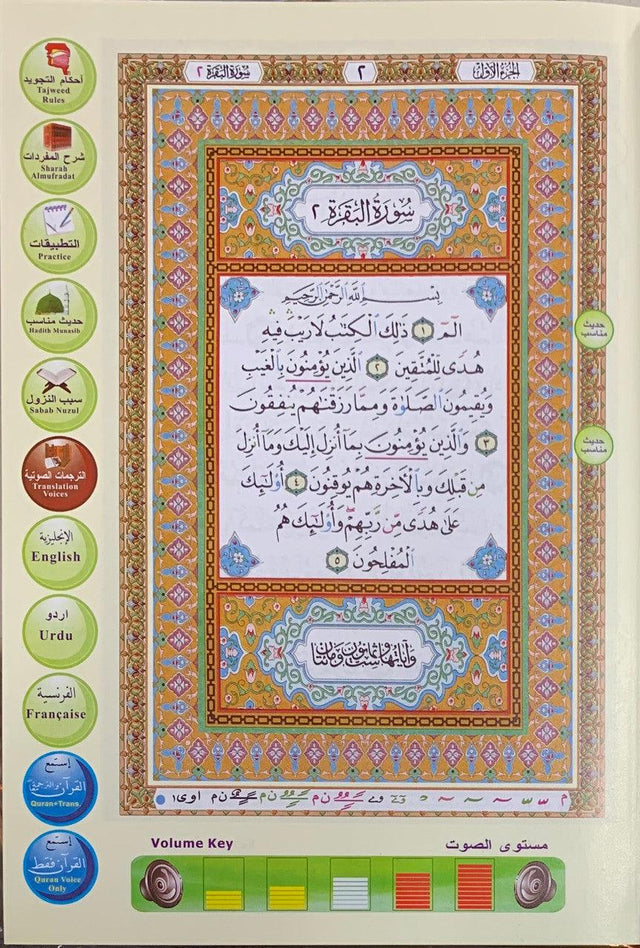 الجزء الأول
٢
سورة البقرة ٢
أحكام التجويد
Tajweed
Rules
شرح المفردات
Sharah
Almufradat
التطبيقات
Practice
حديث مناسب
Hadith Munasib
سبب النزول
Sabab Nuzul
الترجمات الصوتية
Translation
Voices
الإنجليزية
English
اردو
Urdu
الفرنسية
Française
إستمع
القرآن والترجمة
Quran+Trans.
إستمع
القرآن فقط
Quran Voice
Only
سُورَةُ البَقَرَة ٢
بِسْمِ اللَّهِ الرَّحْمَٰنِ الرَّحِيمِ
الٓمٓ ١ ذَٰلِكَ الْكِتَٰبُ لَا رَيْبَ فِيهِ
هُدًى لِلْمُتَّقِينَ ٢ الَّذِينَ يُؤْمِنُونَ بِالْغَيْبِ
وَيُقِيمُونَ الصَّلَوٰةَ وَمِمَّا رَزَقْنَٰهُمْ يُنفِقُونَ
٣ وَالَّذِينَ يُؤْمِنُونَ بِمَا أُنزِلَ إِلَيْكَ وَمَا أُنزِلَ
مِن قَبْلِكَ وَبِالْآخِرَةِ هُمْ يُوقِنُونَ ٤ أُوْلَٰٓئِكَ
عَلَىٰ هُدًى مِّن رَّبِّهِمْ وَأُوْلَٰٓئِكَ هُمُ
الْمُفْلِحُونَ ٥
وَآيَاتُهَا سِتٌّ وَثَمَانُونَ وَمِائَتَانِ
حديث
مناسب
حديث
مناسب
Volume Key
مستوى الصوت